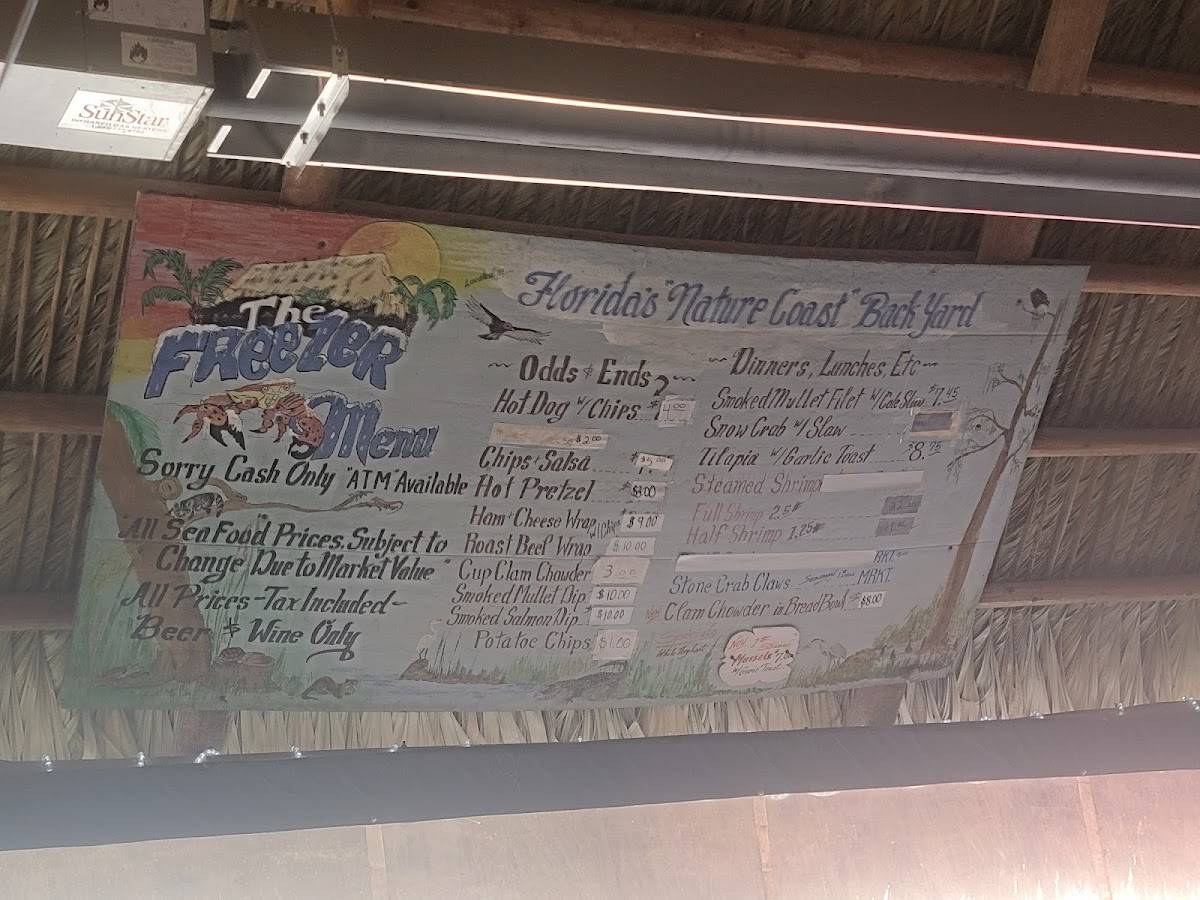 SunStar
The
FREEZER
Menu
Sorry Cash Only "ATM" Available
"All Sea Food" Prices Subject to
Change Due to Market Value"
All Prices - Tax Included -
Beer & Wine Only
Florida's "Nature Coast" Back Yard
~ Odds & Ends ~
Hot Dog w/ Chips $ 4.00
$2.00
Chips & Salsa $5.00
Hot Pretzel $3.00
Ham & Cheese Wrap w/ Chips $9.00
Roast Beef Wrap $10.00
Cup Clam Chowder 3.00
Smoked Mullet Dip $10.00
Smoked Salmon Dip $10.00
Potatoe Chips $1.00
~ Dinners, Lunches, Etc ~
Smoked Mullet Filet w/ Cole Slaw $7.45
Snow Crab w/ Slaw
Tilapia w/ Garlic Toast $8.95
Steamed Shrimp
Full Shrimp 2.5#
Half Shrimp 1.25#
MKT.
Stone Crab Claws MRKT.
Clam Chowder in Bread Bowl $8.00
Mussels